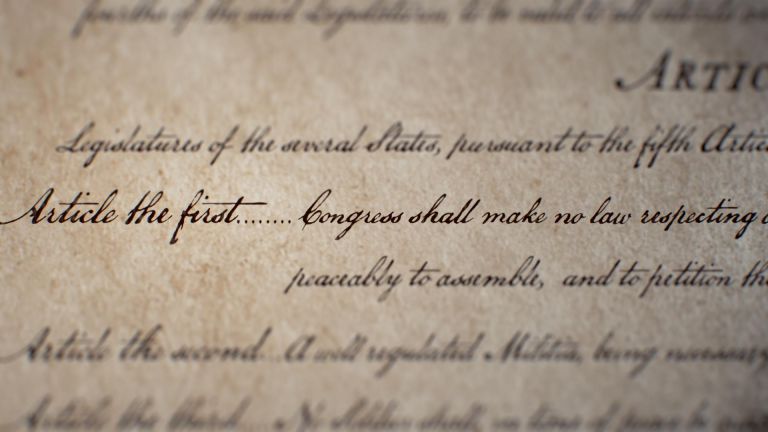 fourths of the said Legislatures, to be valid to all intents
ARTIC
Legislatures of the several States, pursuant to the fifth Artic
Article the first........ Congress shall make no law respecting
peaceably to assemble, and to petition the
Article the second... A well regulated Militia, being necessary
Article the third... No Soldier shall, in time of peace be